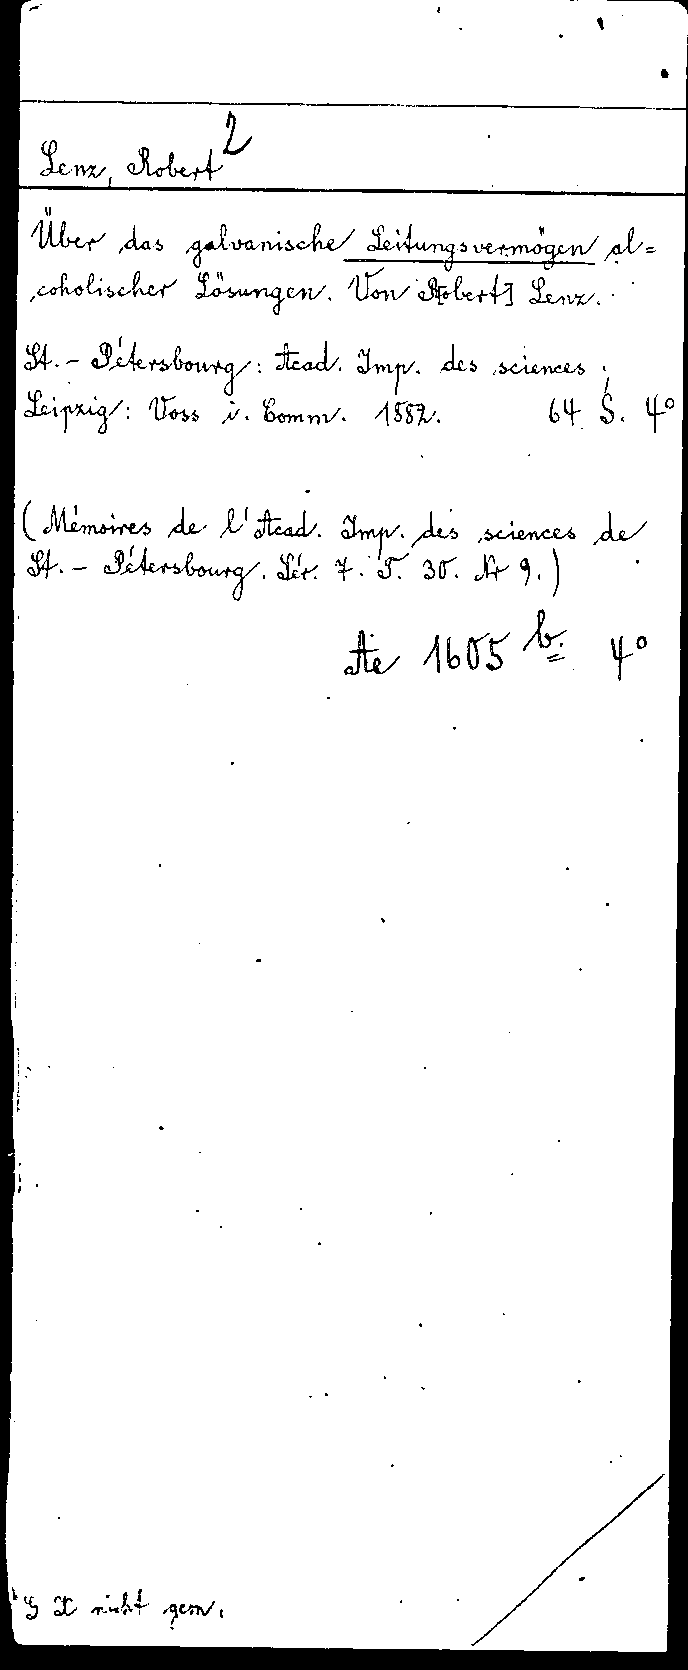 Lenz, Robert 2
Über das galvanische Leitungsvermögen al=
coholischer Lösungen. Von R[obert] Lenz.
St.-Pétersbourg: Acad. Imp. des sciences;
Leipzig: Voss i. Comm. 1882. 64 S. 4°
(Mémoires de l'Acad. Imp. des sciences de
St.-Pétersbourg. Sér. 7. T. 30. Nr 9.)
Ae 1605 b. 4°
nicht gem.